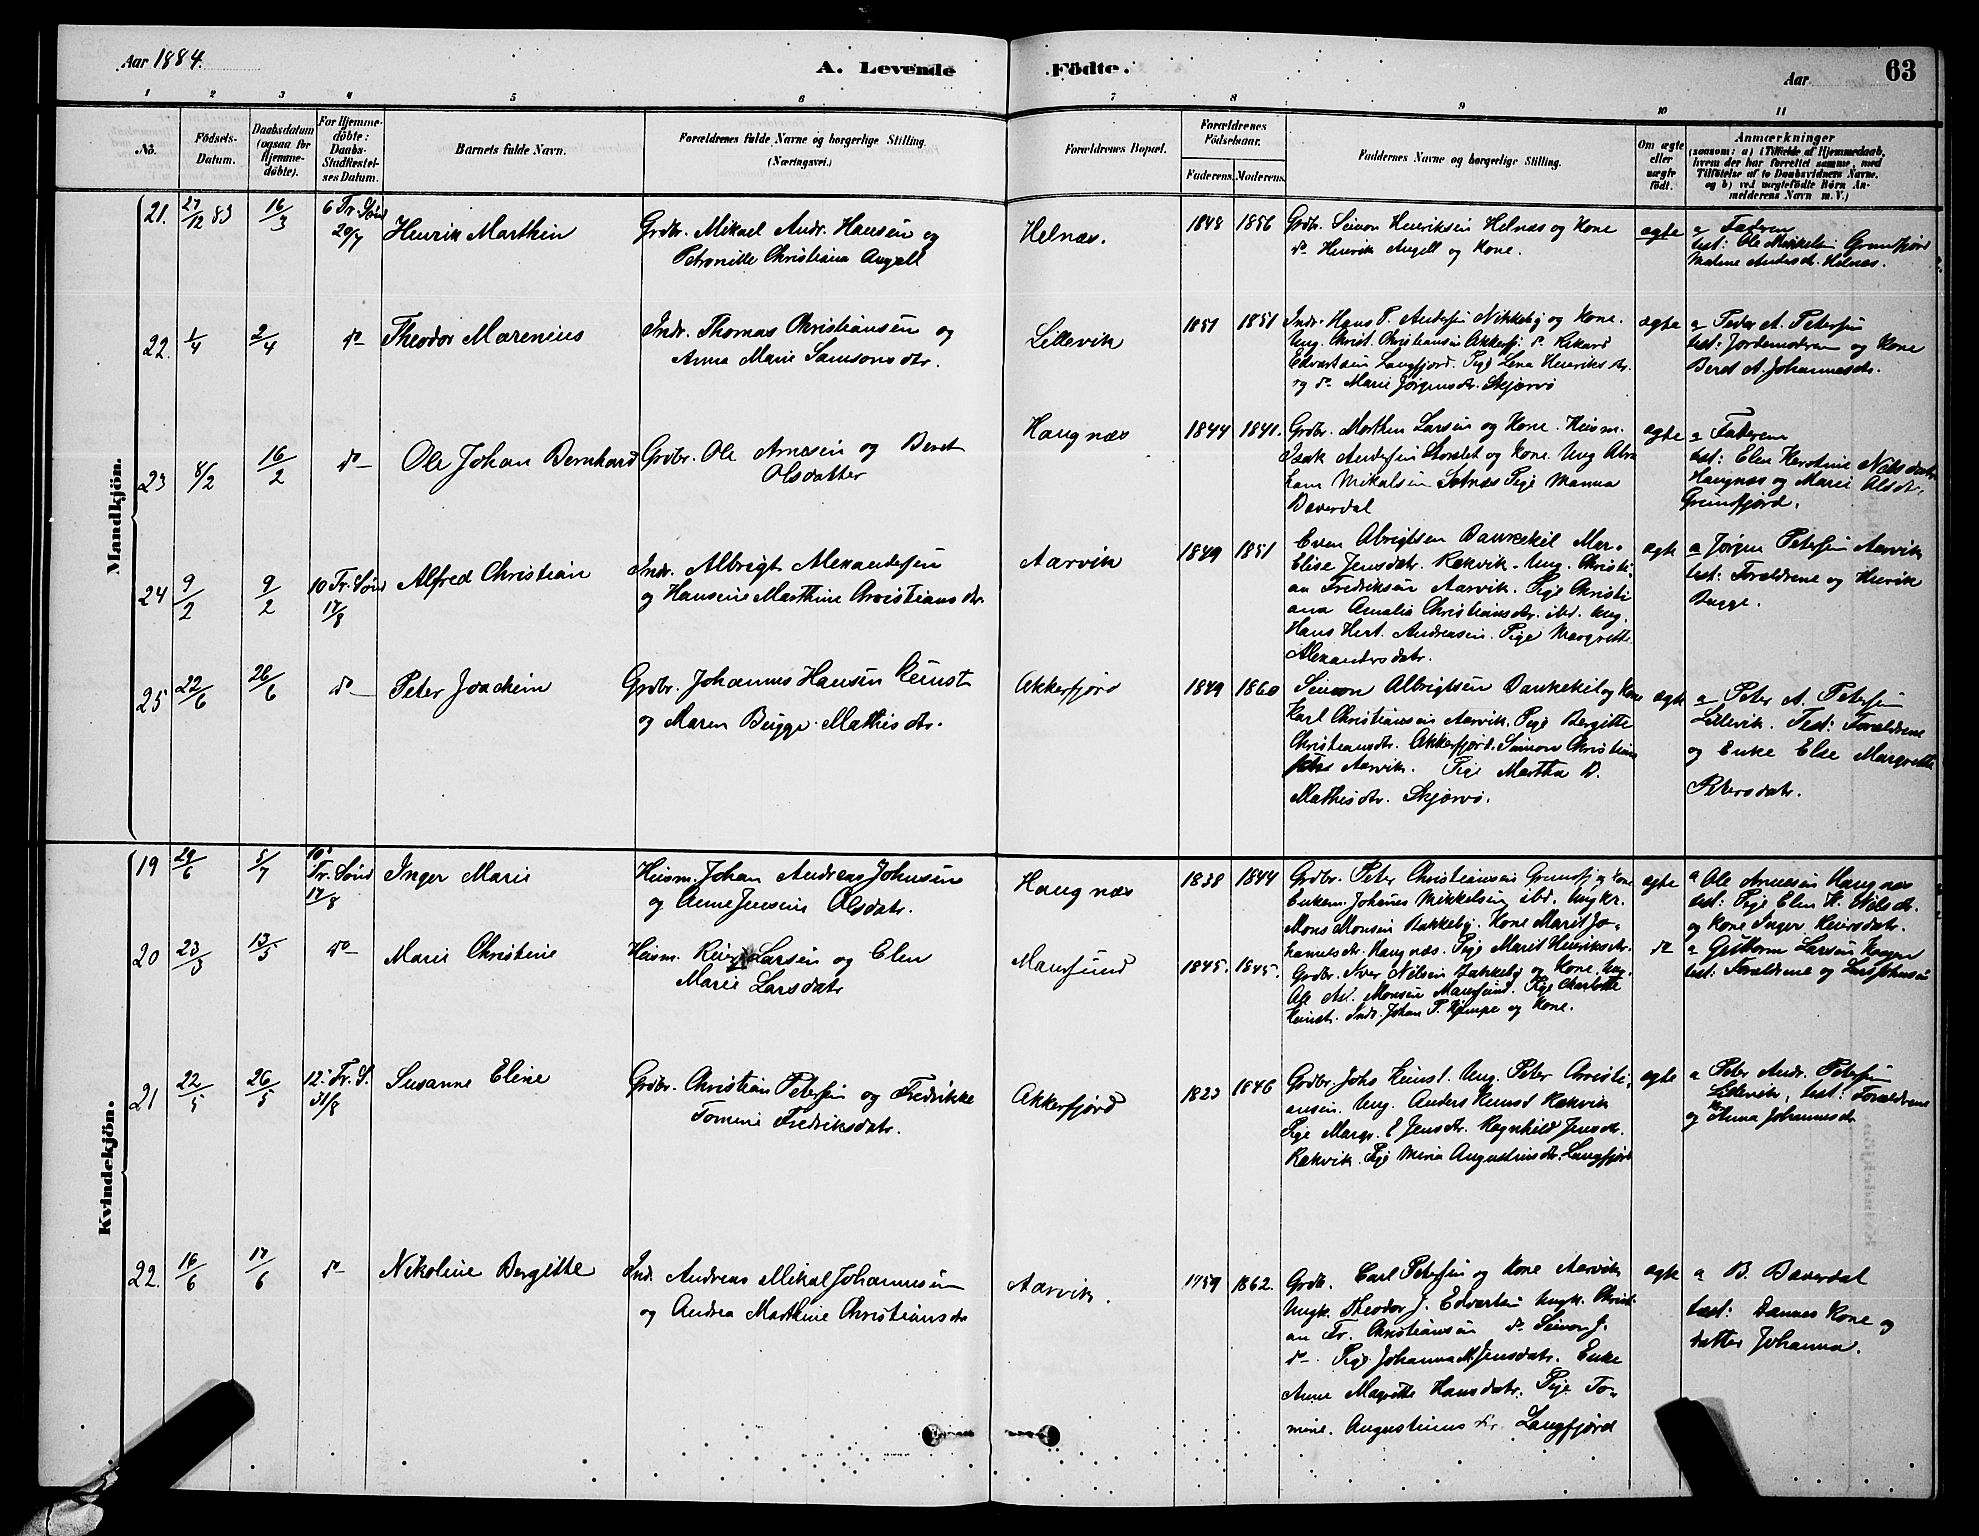 Aar 1884.
A. Levende Födte.
Aar
63
1 2 3 4 5 6 7 8 9 10 11
No.
Födsels-
Datum.
Daabsdatum
(ogsaa for
Hjemme-
döbte).
For Hjemme-
döbte:
Daabs-
Stadfæstel-
ses Datum.
Barnets fulde Navn.
Forældrenes fulde Navne og borgerlige Stilling.
(Næringsvei.)
Forældrenes Bopæl.
Forældrenes
Födselsaar.
Faderens. Moderens.
Faddernes Navne og borgerlige Stilling.
Om ægte
eller
uægte
födt.
Anmærkninger
(saasom: a) i Tilfælde af Hjemmedaab,
hvem der har forrettet samme, med
Tilföielse af to Daabsvidners Navne.
og b) ved uægtefödte Börn An-
melderens Navn m. V.)
Mandkjön.
21. 27/12 83 16/3 6 Tr. Sönd
20/7
Henrik Marthin
Grdbr. Mikael Andr. Hansen og
Petronille Christiana Angell
Helnæs.
1848 1856
Grdbr. Simon Henriksen Helnæs og Kone
do Henrik Angell og Kone.
ægte
a Faderen
test: Ole Mikkelsen Grunfjord
Malene Andersdr. Helnæs.
22. 1/4 2/4 do
Theodor Marenius
Indr. Thomas Christiansen og
Anna Marie Samsonsdtr.
Lillevik
1851 1851
Indr. Hans P. Andersen Nikkeby og Kone.
Ung. Christ. Christiansen Akkerfj. do Rikard
Edvartsen Langfjord. Pige Lena Henriksdtr.
og do Marie Jørgensdtr. Skjervö
ægte
a Peder A. Petersen
test: Jordemoderen og Kone
Beret A. Johannesdr.
23 8/2 16/2 do
Ole Johan Bernhard
Grdbr. Ole Arnesen og Beret
Olsdatter
Haugnæs
1844 1841.
Grdbr. Morthen Larsen og Kone. Husm.
Isak Andersen Storslet og Kone. Ung Abra
ham Mikalsen Sotnæs Pige Manna
Bæverdal
ægte
a Faderen
test: Elen Kerstine Nilsdatr.
Haugnæs og Marie Olsdr.
Grunfjord.
24 9/2 9/2 10 Tr. Sönd
17/8
Alfred Christian
Indr. Albrigt Alexandersen
og Hansine Marthine Christiansdtr.
Aarvik
1849 1851
Even Abrigtsen Dauskekil Mar-
Elise Jensdatr. Rækvik. Ung. Christi-
an Fredriksen Aarvik. Pige Christi
ana Amalia Christiansdtr. ibd. Ung.
Hans Hert. Andreasen. Pige Margrethe
Alexandersdatr.
ægte
a Jørgen Petersen Aarvik
test: Forældrene og Henrik
Bugge.
25 22/6 26/6 do
Peter Joachim
Grdbr. Johannes Hansen Kunst
og Maren Bugge Mathisdtr.
Akkerfjord
1849 1860
Simon Albrigtsen Dauskekil og Kone
Karl Christiansen Aarvik. Pige Bergitte
Christiansdtr. Akkerfjord. Simon Christian
Aarvik. Pige Martha B.
Mathisdtr. Skjervö.
ægte
a Peter A. Petersen
Lillevik. Test: Forældrene
og Enke Else Margrethe
Petersdatr.
Kvindekjön.
19 29/6 5/7 10'
Tr. Sönd
17/8
Inger Marie
Husm. Johan Andreas Johnsen
og Anne Jensine Olsdatr.
Haugnæs
1838 1844
Grdbr. Peter Christiansen Grunfj. og Kone
Enkem. Johanes Mikkelsen ibd. Ungkr.
Mons Monsen Bakkeby. Kone Marit Jo-
hannesdtr. Haugnæs. Pige Marit Henriksdtr.
ægte
a Ole Arnesen Haugnæs
test: Pige Elen K. Nilsdr.
og Kone Inger Reiersdatr.
20 23/3 13/5 do
Marie Christine
Husm. Reier Larsen og Elen
Marie Larsdatr
Maursund
1845. 1845.
Grdbr. Iver Nilsen Bakkeby og Kone. Ung.
Ole Ad. Monsen Maursund. Pige Charlotte
Kunst. Indr. Johan P. Kjempe og Kone.
do
a Guthorm Larsen Kaagen
test: Forældrene og Lars Johnsen
21 22/5 26/5 12' Tr. S.
31/8
Susanne Eline
Grdbr. Christian Petersen og Fredrikke
Tomine Fredriksdatr.
Akkerfjord
1823 1846
Grdbr. Johs Kunst. Ung. Peter Christi-
ansen. Ung. Anders Kunst Rækvik
Pige Margr. E Jensdtr. Ragnhild Jensdtr.
Rækvik. Pige Mina Augustinusdtr. Langfjord
ægte
a Peter Andr. Petersen
Lillevik, test: Forældrene
og Anna Johannesdr
22. 16/6 17/6 do
Nikoline Bergitte
Ind. Andreas Mikal Johannesen
og Andrea Marthine Christiansdtr
Aarvik.
1859 1862.
Grdb. Carl Petersen og Kone Aarvik
Ungk. Theodor J. Edvartsen Ungk. Christi-
an Fr. Christiansen do Simon J.
do Pige Johanna M. Jensdatr. Enke
Anne Magrethe Hansdatr. Pige To-
mine. Augustinus dr. Langfjord
ægte
a B. Bæverdal
test: Dennes Kone og
datter Johanna.